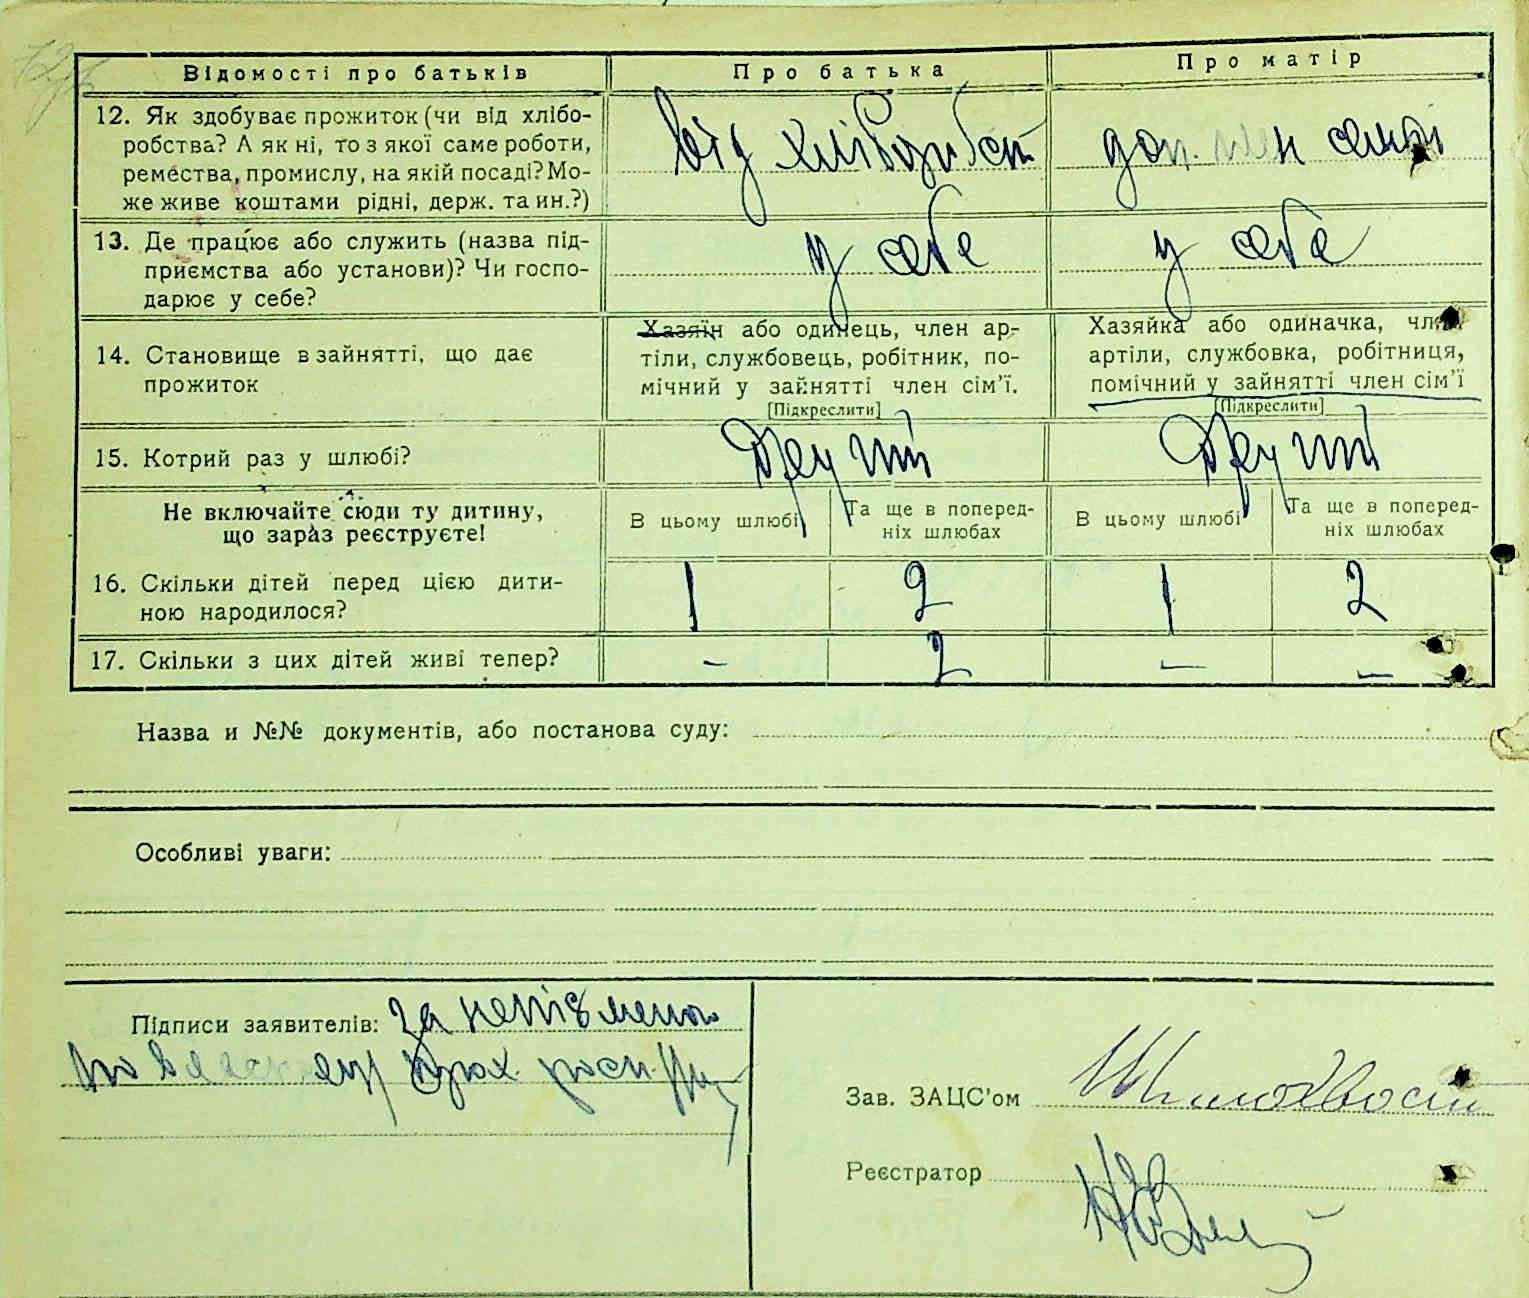 Відомості про батьків
Про батька
Про матір
12. Як здобуває прожиток (чи від хлібо-
робства? А як ні, то з якої саме роботи,
ремества, промислу, на якій посаді? Мо-
же живе коштами рідні, держ. та ин.?)
від хліборобст
доп. член семьі
13. Де працює або служить (назва під-
приємства або установи)? Чи госпо-
дарює у себе?
у себе
у себе
14. Становище в зайнятті, що дає
прожиток
Хазяїн або одинець, член ар-
тіли, службовець, робітник, по-
мічний у зайнятті член сім'ї.
[Підкреслити]
Хазяйка або одиначка, член
артіли, службовка, робітниця,
помічний у зайнятті член сім'ї
[Підкреслити]
15. Котрий раз у шлюбі?
Другий
Другий
Не включайте сюди ту дитину,
що зараз реєструєте!
В цьому шлюбі
Та ще в поперед-
ніх шлюбах
В цьому шлюбі
Та ще в поперед-
ніх шлюбах
16. Скільки дітей перед цією дити-
ною народилося?
1 2 1 2
17. Скільки з цих дітей живі тепер?
- 2 - -
Назва и №№ документів, або постанова суду:
Особливі уваги:
Підписи заявителів: за непізмено
по
Зав. ЗАЦС'ом Шилохвост
Реєстратор